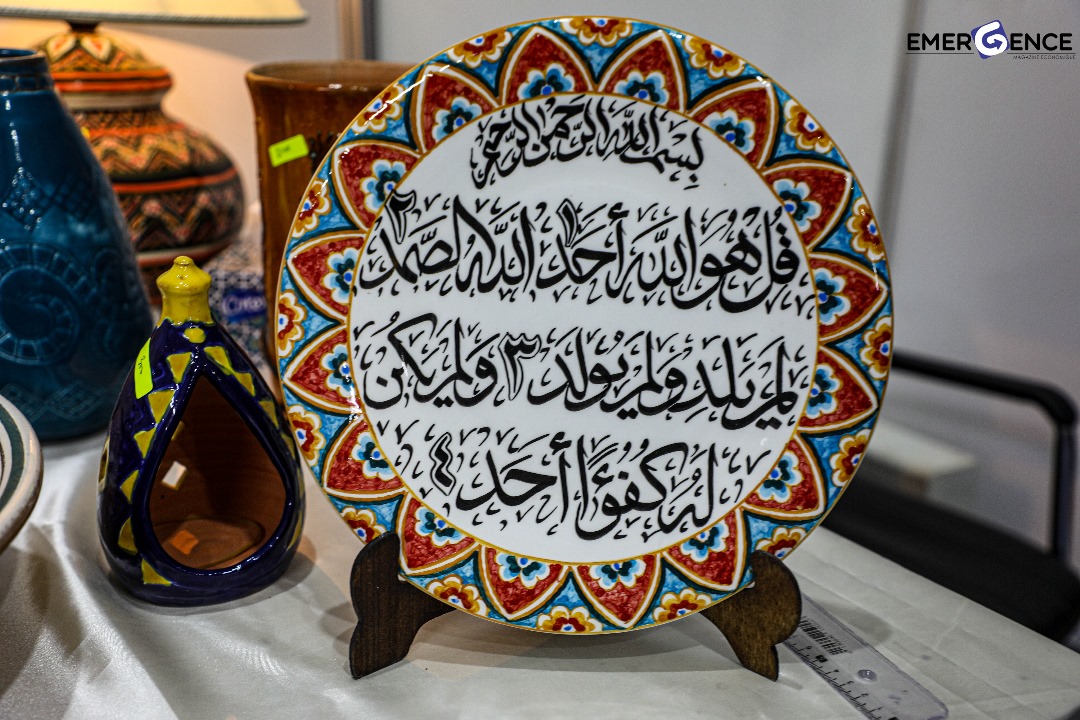 EMERGENCE
MAGAZINE ECONOMIQUE
بسم الله الرحمن الرحيم
قل هو الله أحد ١ الله الصمد ٢
لم يلد ولم يولد ٣ ولم يكن
له كفؤا أحد ٤